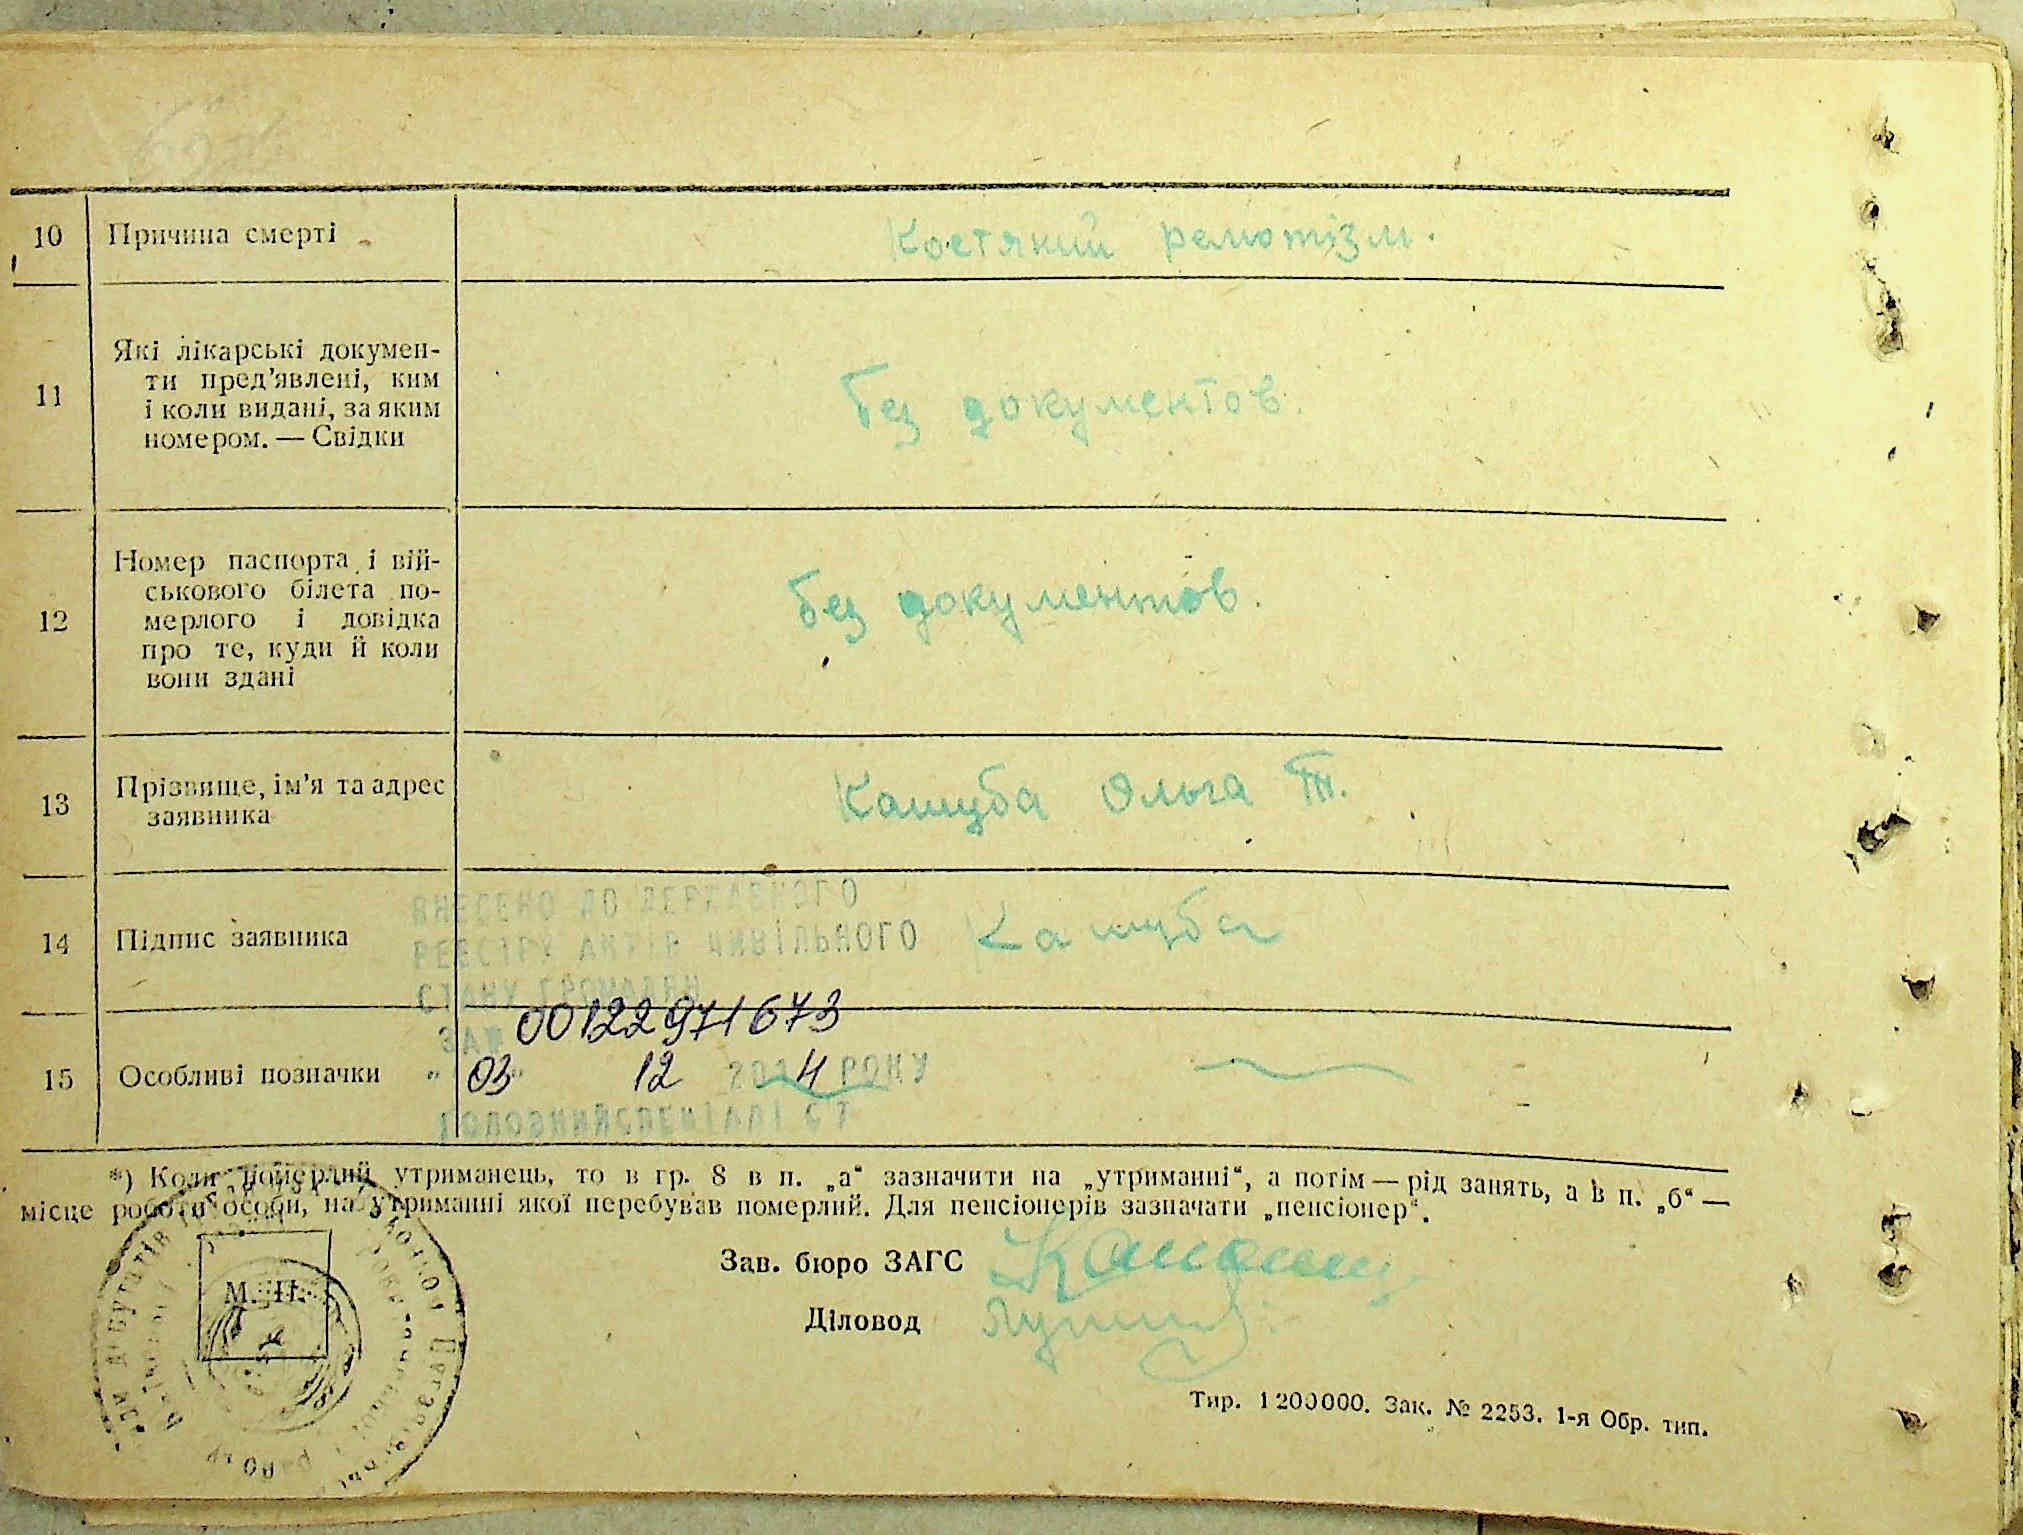 10 Причина смерті Костяний ремотізм.
11 Які лікарські докумен-
ти пред'явлені, ким
і коли видані, за яким
номером. — Свідки
без документов.
12 Номер паспорта і вій-
ськового білета по-
мерлого і довідка
про те, куди й коли
вони здані
без документов.
13 Прізвище, ім'я та адрес
заявника
Кашуба Ольга Т.
ВНЕСЕНО ДО ДЕРЖАВНОГО
РЕЄСТРУ АКТІВ ЦИВІЛЬНОГО
СТАНУ ГРОМАДЯН
14 Підпис заявника Кашуба
ЗА № 00122971673
15 Особливі позначки " 03 " 12 2014 РОКУ
ГОЛОВНИЙ СПЕЦІАЛІСТ
*) Коли померлий утриманець, то в гр. 8 в п. „а“ зазначити на „утриманні“, а потім — рід занять, а в п. „б“ —
місце роботи особи, на утриманні якої перебував померлий. Для пенсіонерів зазначати „пенсіонер“.
М. П.
Зав. бюро ЗАГС
Діловод
Тир. 1200000. Зак. № 2253. 1-я Обр. тип.